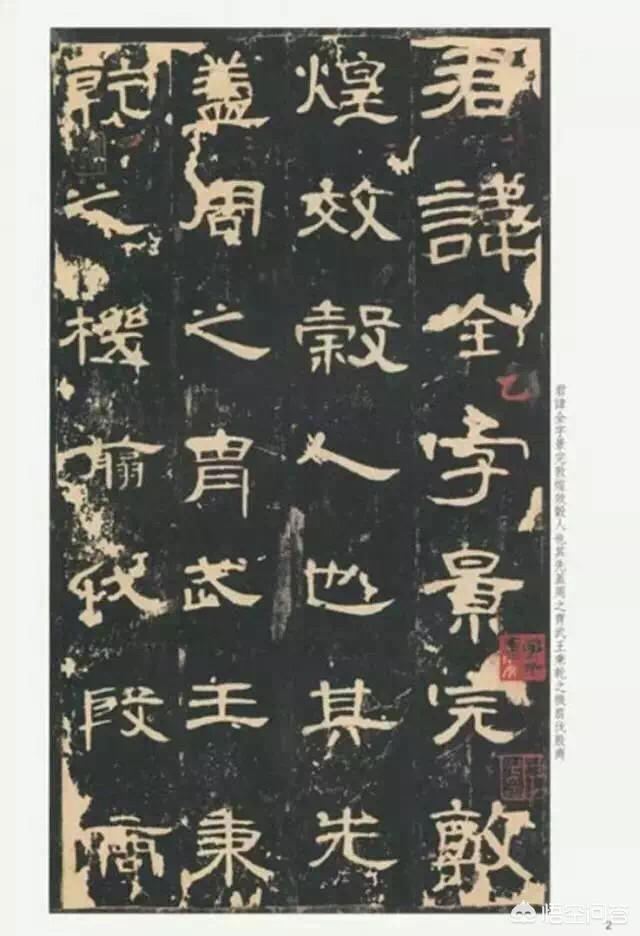 君諱全字景完敦
煌效穀人也其先
蓋周之胄武王秉
乾之機翦伐殷商
乙
君諱全字景完敦煌效穀人也其先蓋周之胄武王秉乾之機翦伐殷商
2
悟空问答